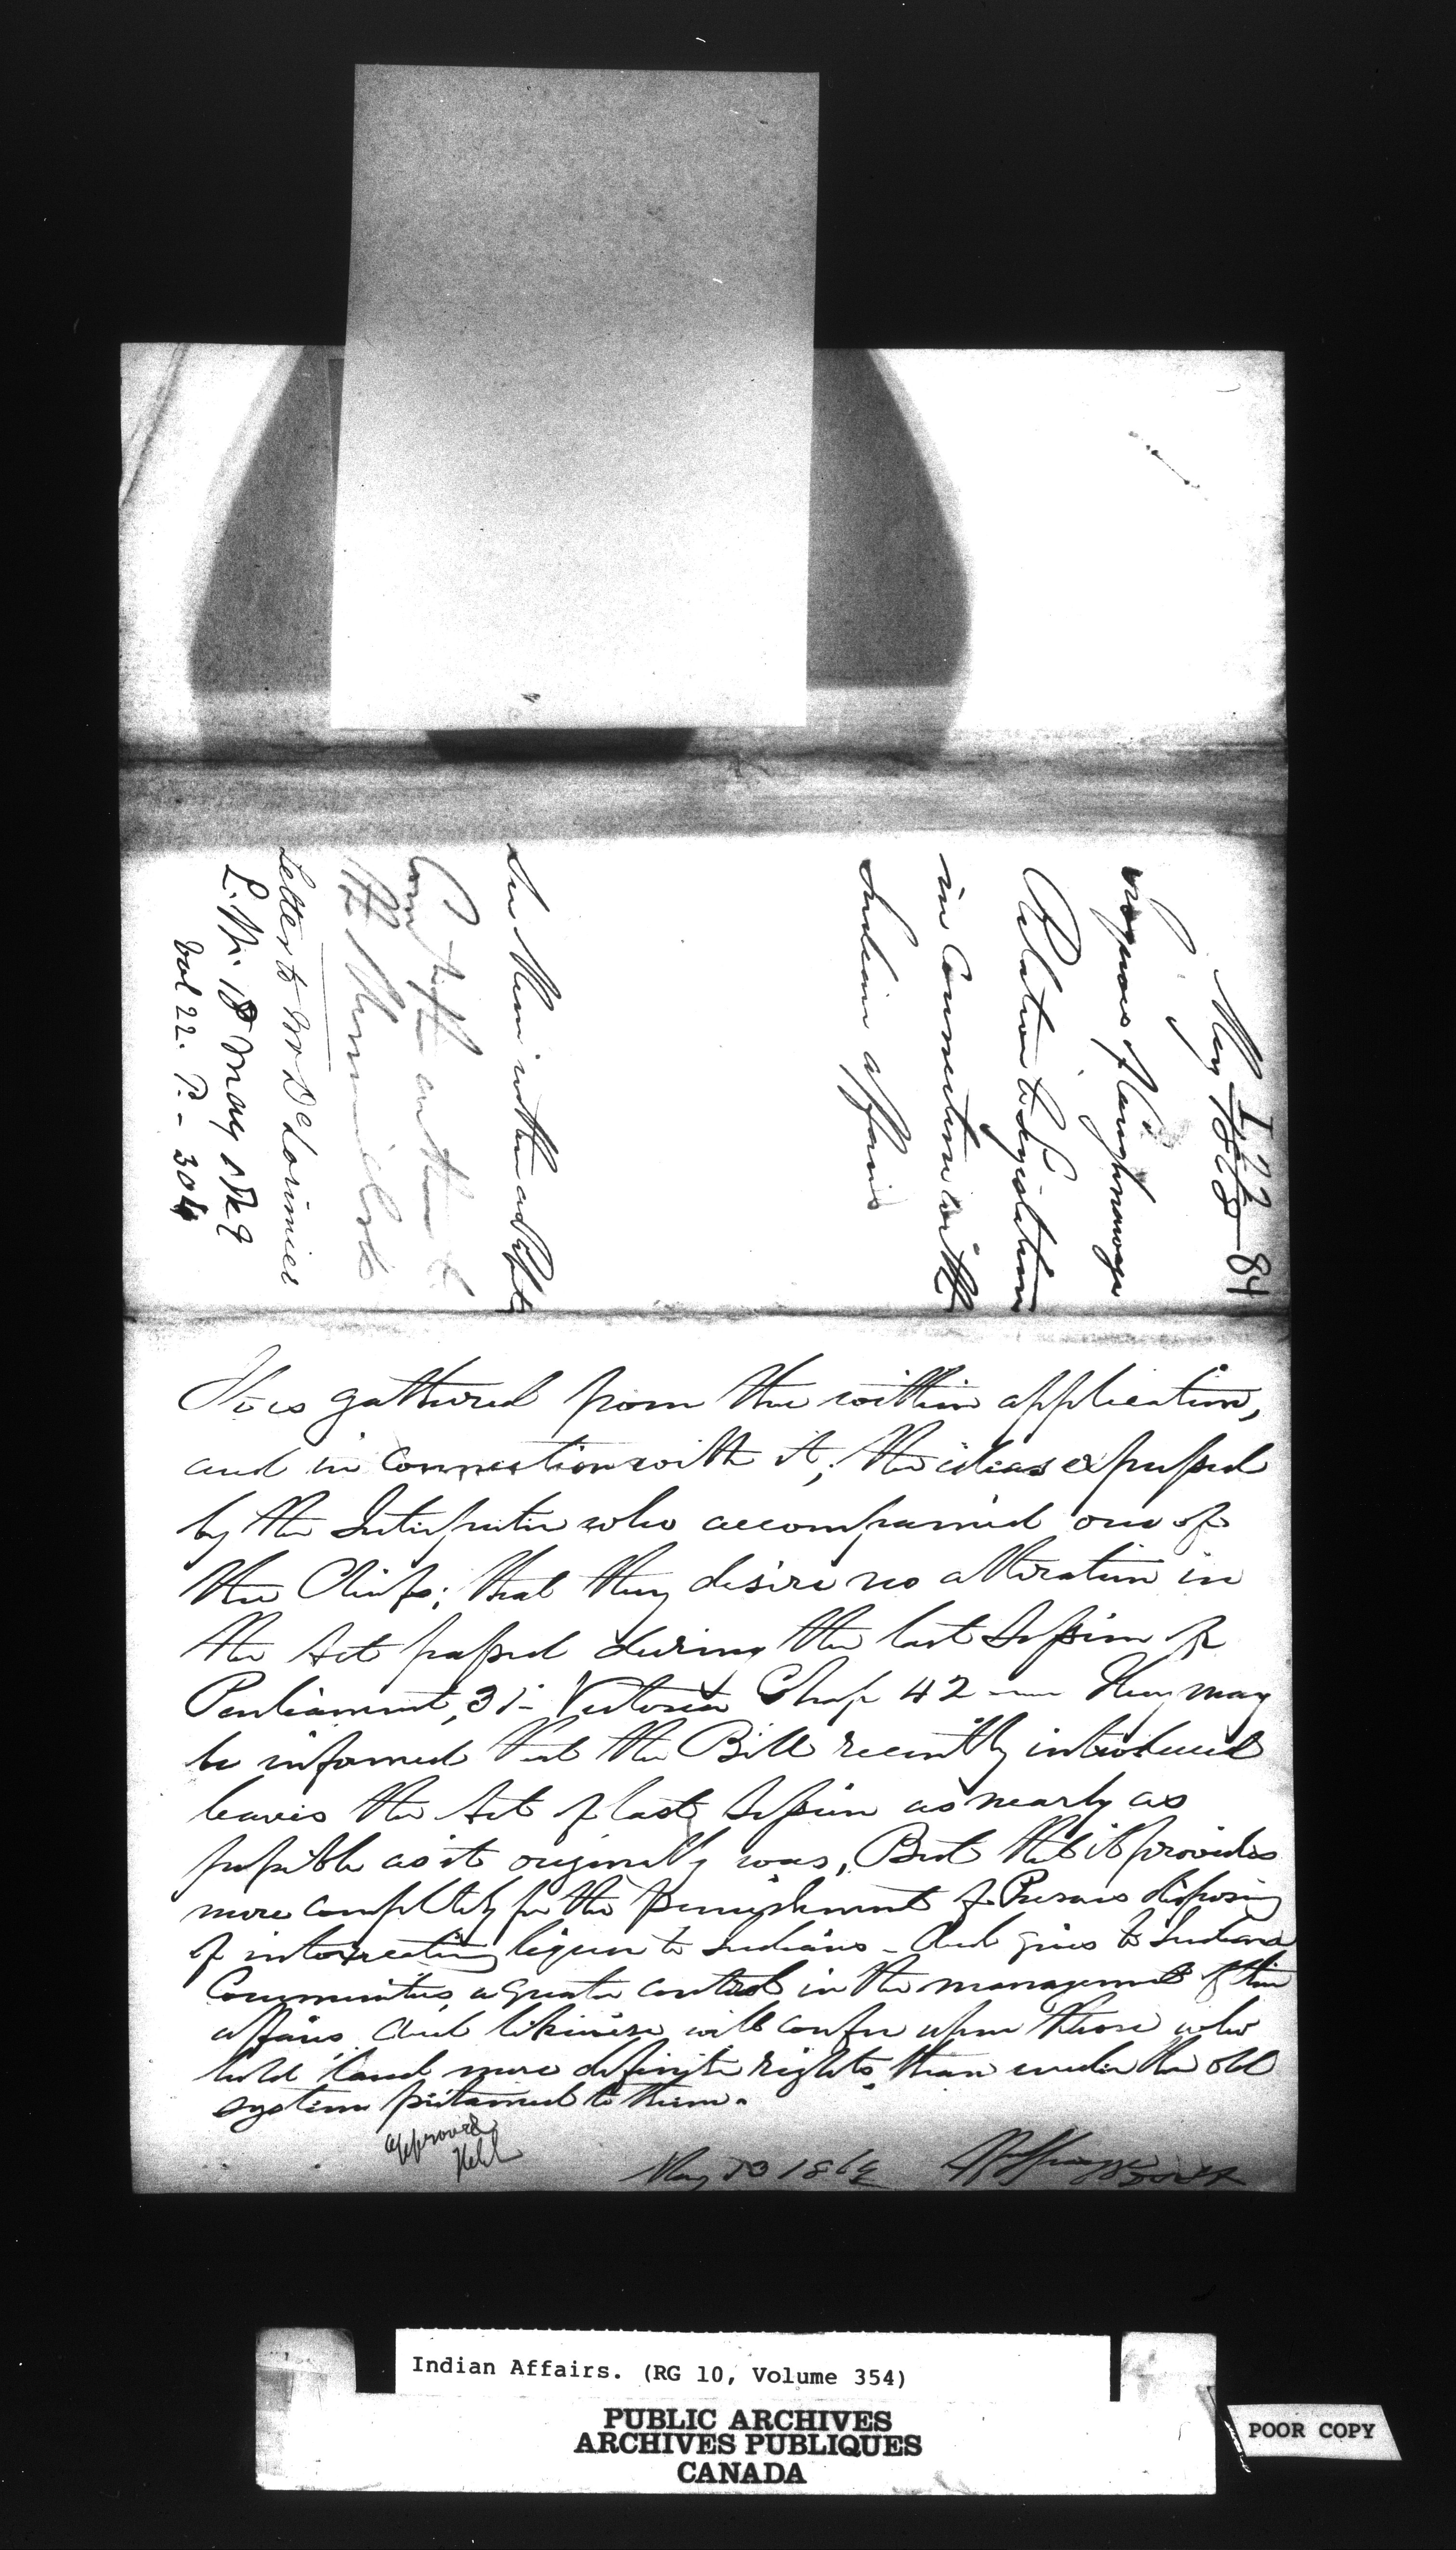 I 22 84
May 1869
Iroquois of Caughnawaga
Relative to Legislation
in Connection with
Indian affairs
See Mem: within
Letter to Mr DeLorimier
L. Nr. 18 May 1869
Vol 22. P. - 304
It is gathered from the within application,
and in connection with it, the ideas expressed
by the Interpreter who accompanied one of
the Chiefs; that they desire no alteration in
the Act passed during the last Session of
Parliament, 31- Victoria Chap 42 - They may
be informed that the Bill recently introduced
leaves the Act of last Session as nearly as
possible as it originally was, But that it provides
more completely for the punishment of Persons disposing
of intoxicating liquor to Indians - And gives to Indian
Communities, a greater control in the management of their
affairs And likewise will confer upon those who
hold land more definite rights, than under the old
system pertained to them.
approved
May 13 1869
Indian Affairs. (RG 10, Volume 354)
PUBLIC ARCHIVES
ARCHIVES PUBLIQUES
CANADA
POOR COPY